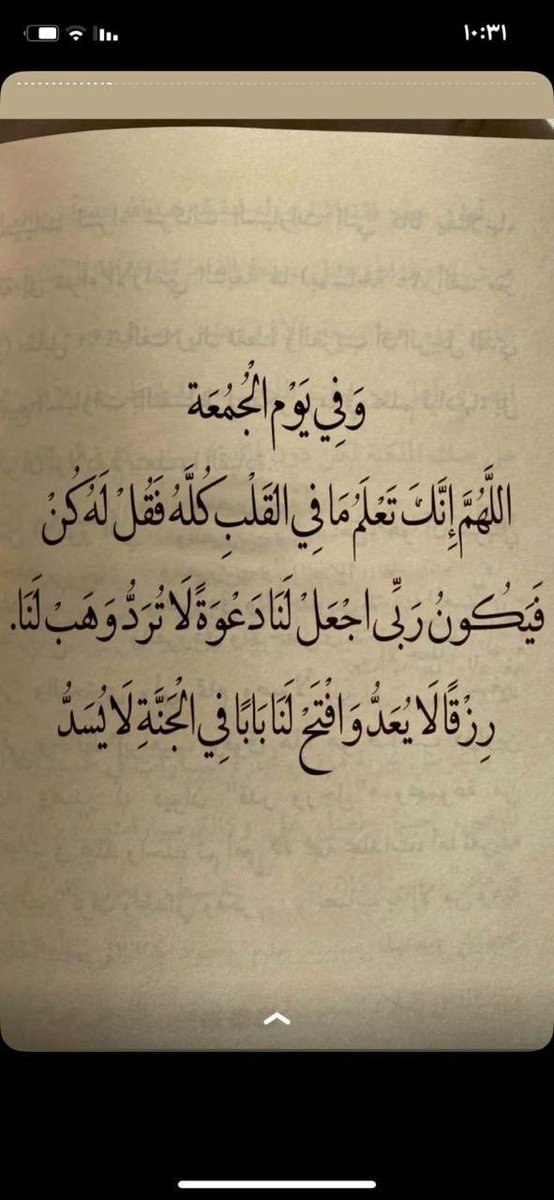 ١٠:٣١
وَفِي يَوْمِ الْجُمُعَة
اللَّهُمَّ إِنَّكَ تَعْلَمُ مَا فِي القَلْبِ كُلَّهُ فَقُلْ لَهُ كُنْ
فَيَكُونُ رَبِّى اجْعَلْ لَنَا دَعْوَةً لَا تُرَدُّ وَهَبْ لَنَا.
رِزْقًا لَا يُعَدُّ وَافْتَحْ لَنَا بَابًا فِي الْجَنَّةِ لَا يُسَدُّ